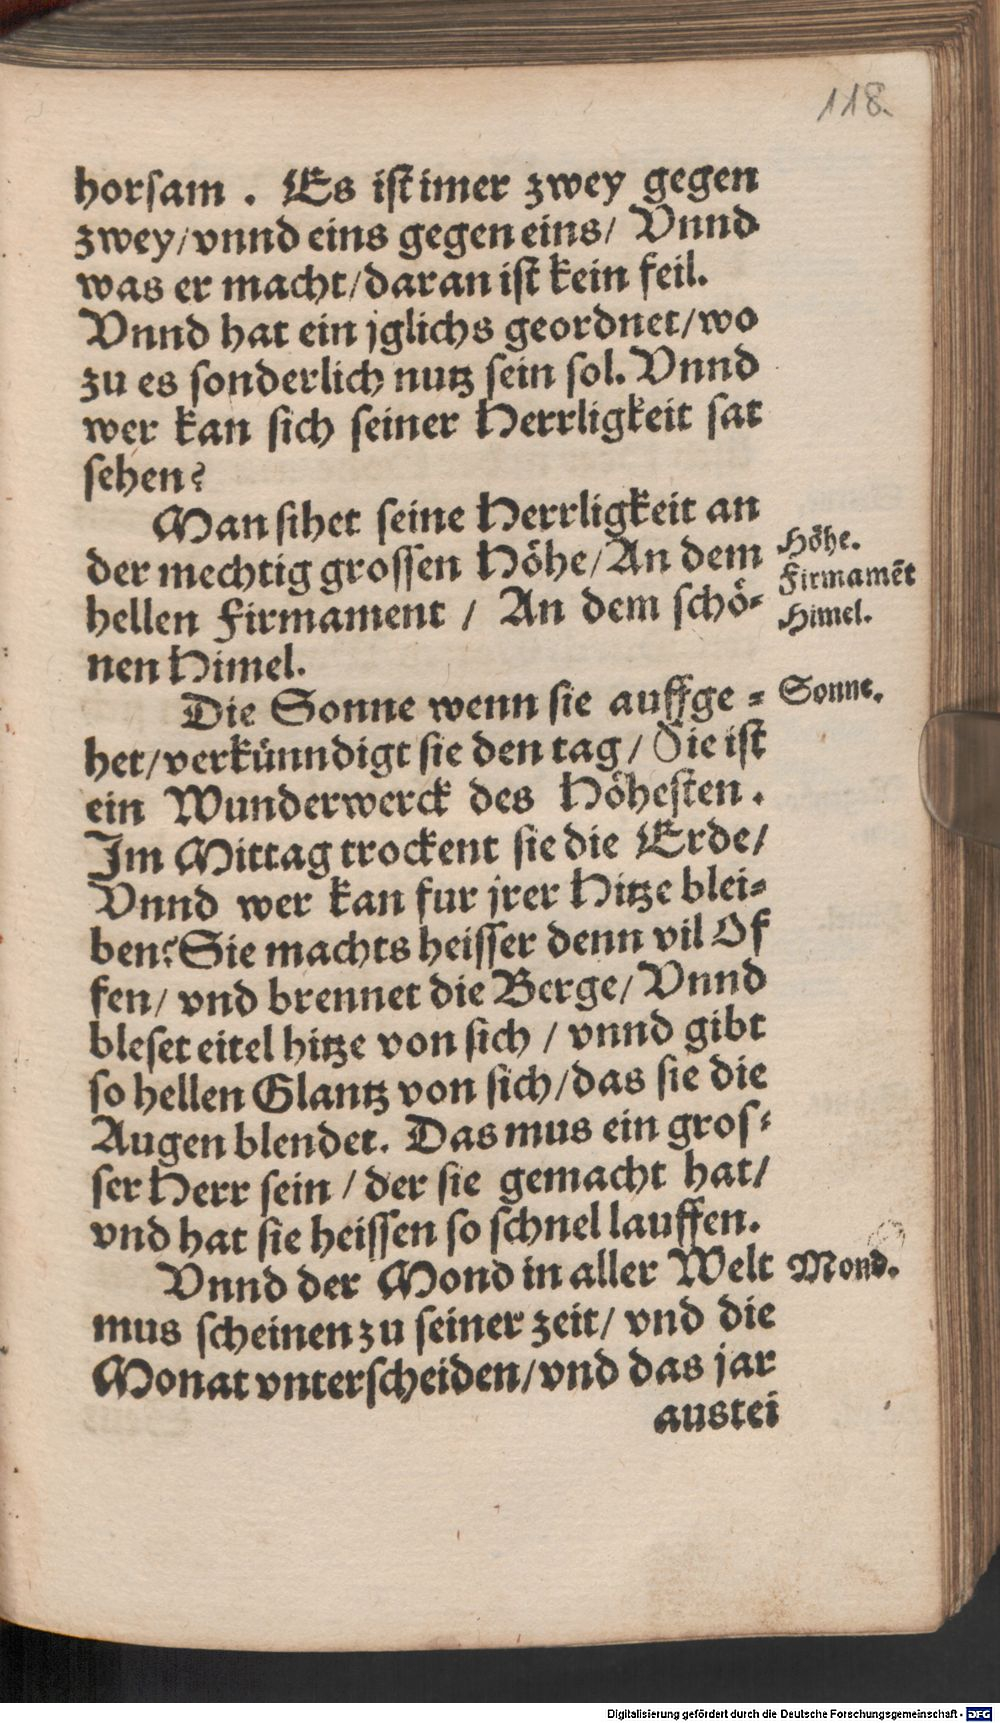 118.
horsam . Es ist imer zwey gegen
zwey/vnnd eins gegen eins/ Vnnd
was er macht/daran ist kein feil.
Vnnd hat ein jglichs geordnet/wo
zu es sonderlich nutz sein sol. Vnnd
wer kan sich seiner Herrligkeit sat
sehen?
Man sihet seine Herrligkeit an
der mechtig grossen Höhe/An dem
Höhe.
hellen Firmament / An dem schö-
Firmamēt
nen Himel.
Himel.
Die Sonne wenn sie auffge-
Sonne.
het/verkünndigt sie den tag/ Die ist
ein Wunderwerck des Höhesten.
Im Mittag trockent sie die Erde/
Vnnd wer kan fur jrer Hitze blei-
ben? Sie machts heisser denn vil Of
fen/ vnd brennet die Berge/ Vnnd
bleset eitel hitze von sich / vnnd gibt
so hellen Glantz von sich/das sie die
Augen blendet. Das mus ein gros-
ser Herr sein / der sie gemacht hat/
vnd hat sie heissen so schnel lauffen.
Vnnd der Mond in aller Welt
Mond.
mus scheinen zu seiner zeit/ vnd die
Monat vnterscheiden/vnd das jar
austei
Digitalisierung gefördert durch die Deutsche Forschungsgemeinschaft - DFG